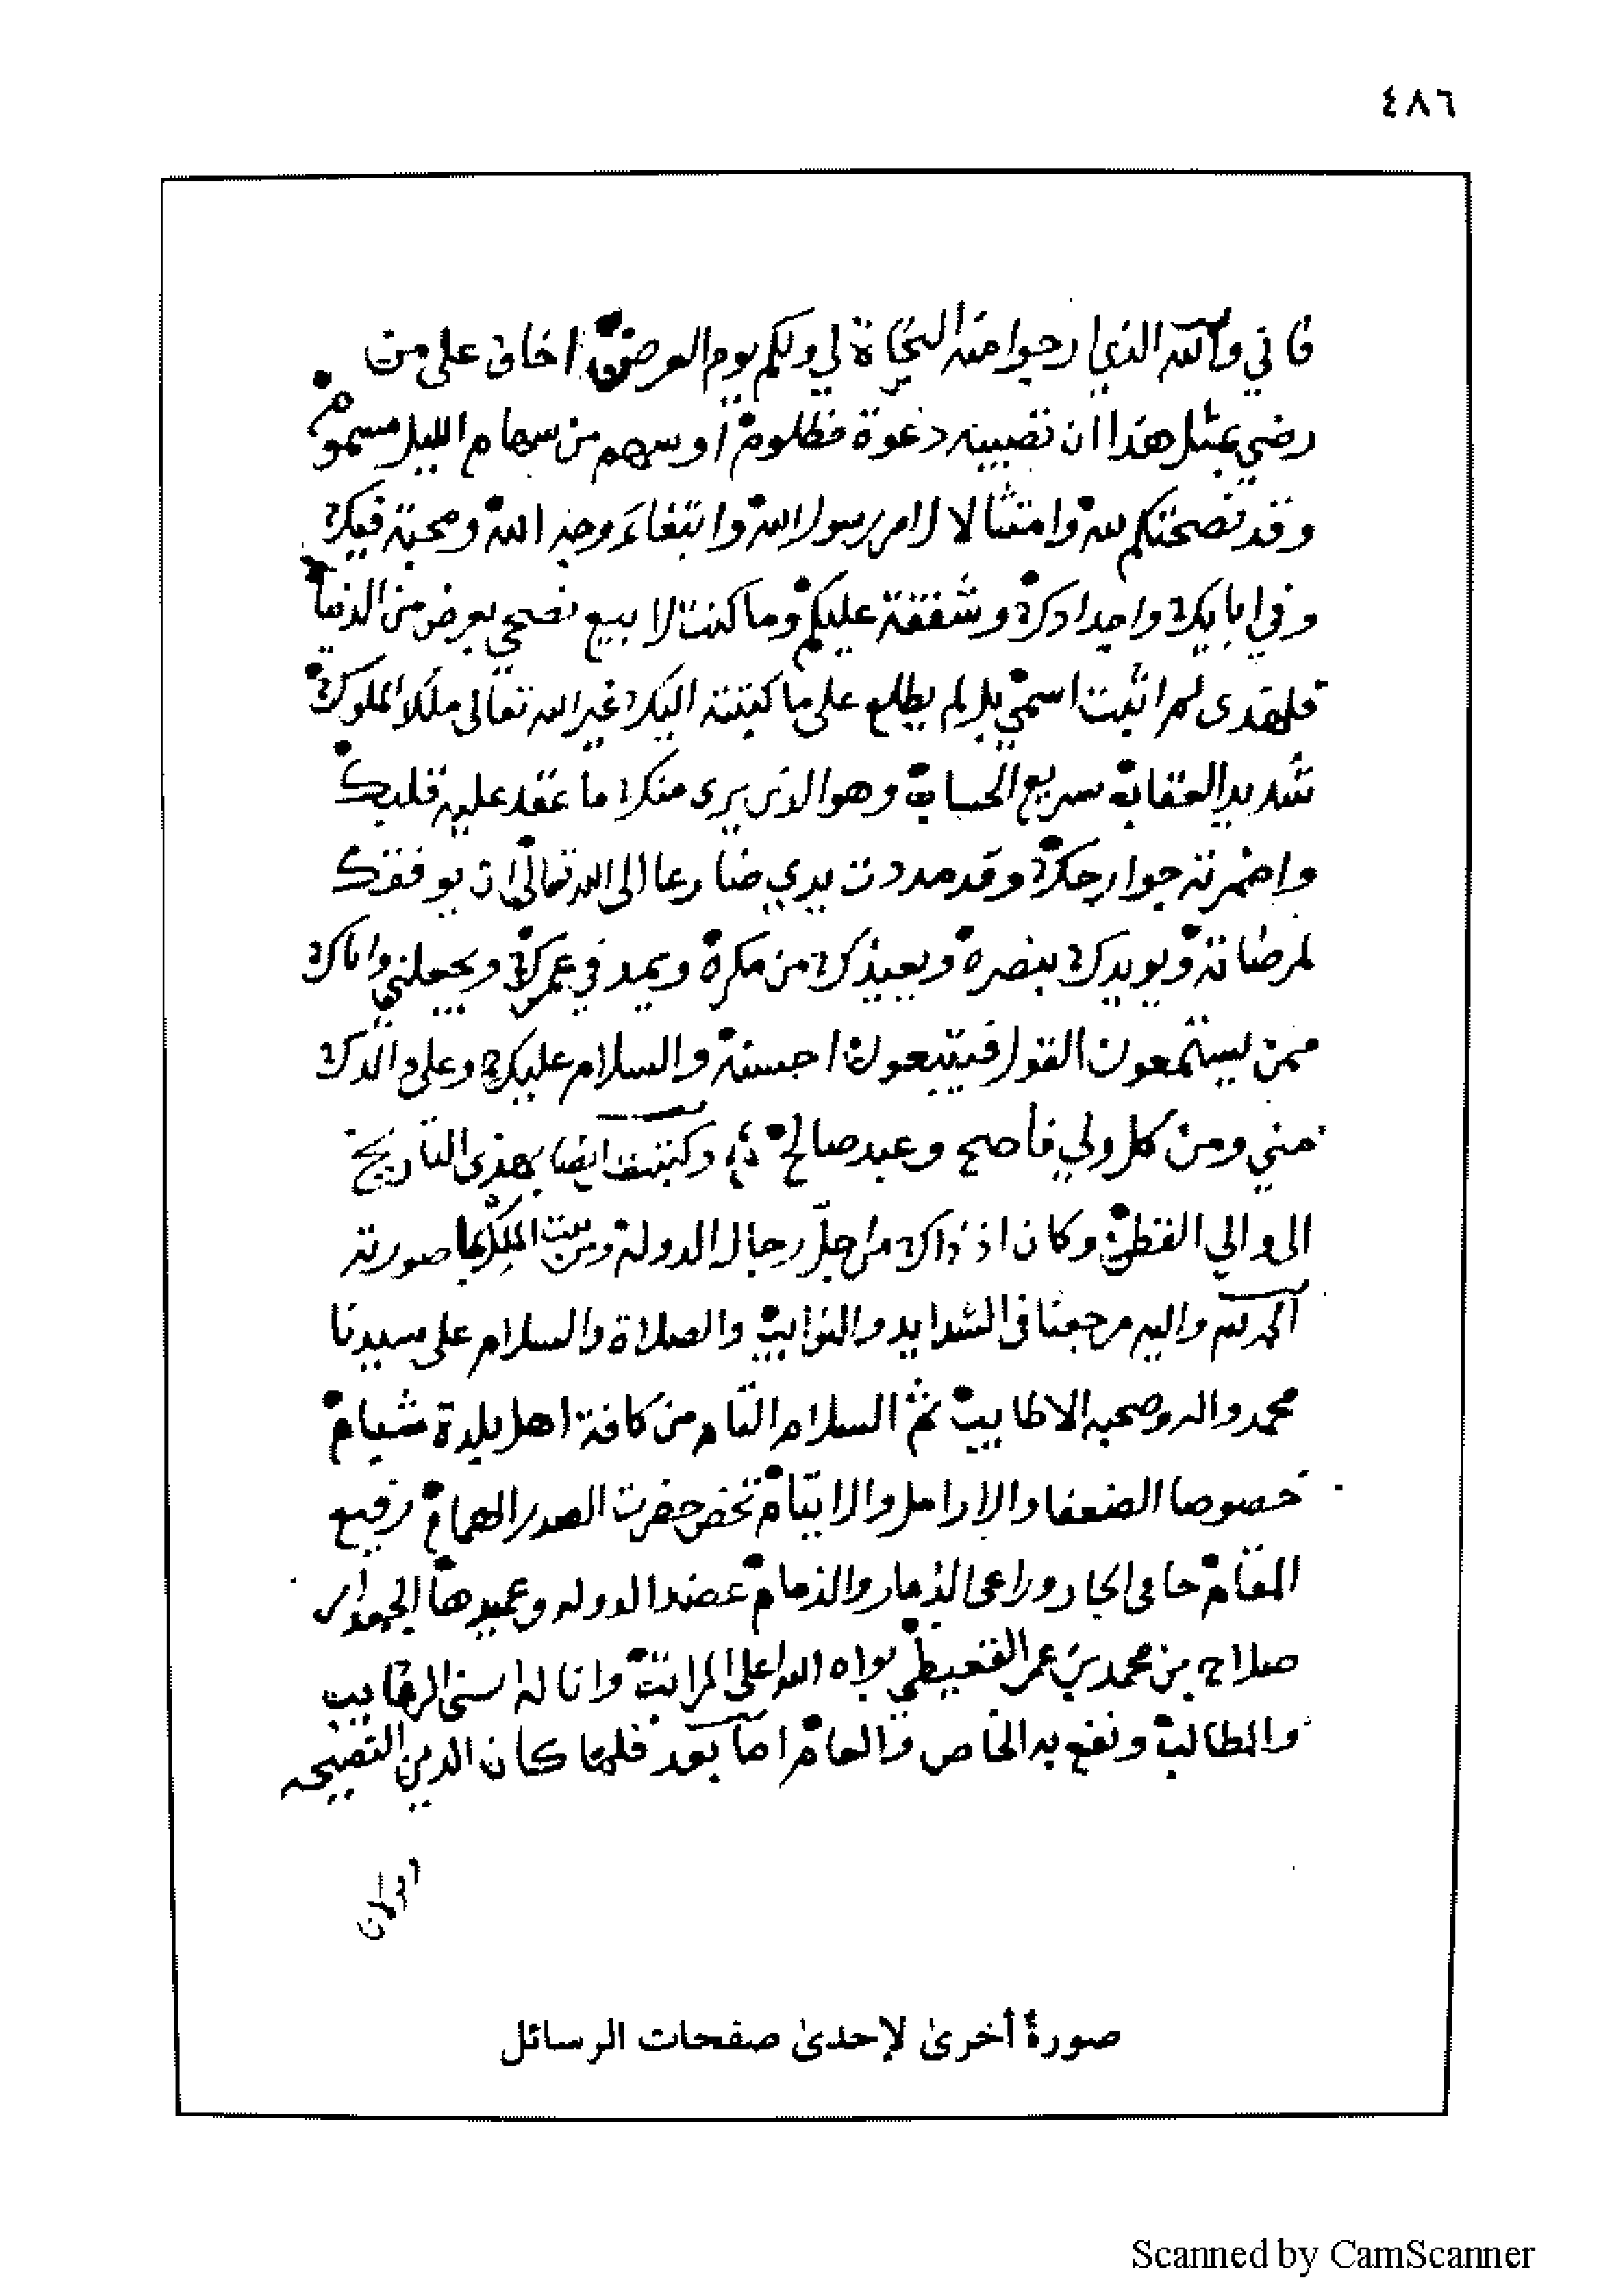 ٤٨٦
فاني والله الذي ارجوا منه النجاة لي ولكم يوم العرض اخاف على من
رضي بمثل هذا ان تصيبه دعوة مظلوم او سهم من سهام الليل مسموم
وقد نصحتكم لله وامتثالا لامر رسول الله وابتغاء وجه الله ومحبة فيك
وفي ابايك واجدادك وشفقة عليكم وما كنت لا بيع نصحي بعرض من الدنيا
فلهذى لم اثبت اسمي بل لم يطلع على ما كتبته اليك غير الله تعالى ملك الملوك
شديد العقاب سريع الحساب وهو الذي يرى منك ما عقد عليه قلبك
واضمرته جوارحك وقد مددت يدي ضارعا الى الله تعالى ان يوفقك
لمرضاته ويويدك بنصره ويعيذك من مكره ويمد في عمرك ويجعلني واياك
ممن يستمعون القول فيتبعون احسنه والسلام عليك وعلى والدك
مني ومن كل ولي ناصح وعبد صالح وكتبت ايضا بهذى التاريخ
الى والي القطن وكان اذ ذاك من اجلّ رجال الدولة ومن بيت الملك بما صورته
الحمد لله واليه مرجعنا في الشدايد والنوايب والصلاة والسلام على سيدنا
محمد واله وصحبه الاطايب ثم السلام التام من كافة اهل بلدة شبام
خصوصا الضعفا والارامل والايتام تخص حضرت الصدر الهمام رفيع
المقام حامي الجار وراعى الذمار والذمام عضد الدوله وعميدها الجمدار
صلاح بن محمد بن عمر القعيطي بواه الله اعلى المراتب وانا له اسنى الرغايب
والمطالب ونفع به الخاص والعام اما بعد فلما كان الدين النصيحه
صورةٌ أخرىٰ لإحدىٰ صفحات الرسائل
Scanned by CamScanner